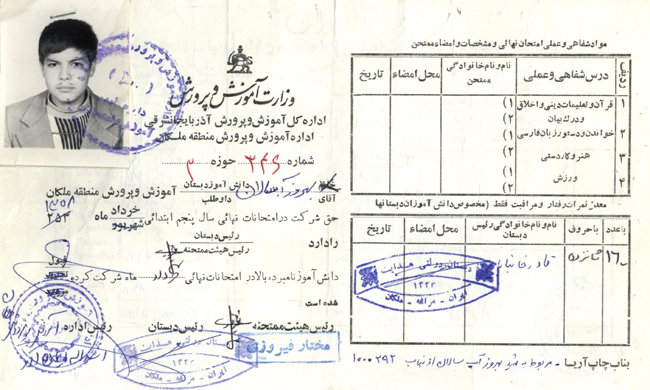 وزارت آموزش و پرورش
اداره کل آموزش و پرورش آذربایجان‌شرقی
اداره آموزش و پرورش منطقه ملکان
شماره ۳۴۶ حوزه ۳
آقای بهروز
دانش آموز دبستان
داوطلب
آموزش و پرورش منطقه ملکان
حق شرکت در امتحانات نهائی سال پنجم ابتدائی خرداد شهریور ماه
۱۳۵۸
۲۵۳
را دارد
رئیس دبستان
رئیس هیئت ممتحنه
دانش آموز نامبرده بالا در امتحانات نهائی خرداد ماه شرکت کرده
قبول
شده است
رئیس هیئت ممتحنه
رئیس دبستان
رئیس اداره
مختار فیروزی
دبستان دولتی هدایت
۱۳۲۳
ایران - مراغه - ملکان
مواد شفاهی و عملی امتحان نهائی و مشخصات و امضاء ممتحن
ردیف
درس شفاهی و عملی
نام و نام خانوادگی ممتحن
محل امضاء
تاریخ
۱ قرآن و تعلیمات دینی و اخلاق ۱)
و درک بیان ۲)
۲ خواندن و دستور زبان فارسی ۱)
۲)
۳ هنر و کاردستی ۱)
۲)
۴ ورزش
معدل نمرات رفتار و مراقبت فقط (مخصوص دانش آموزان دبستانها)
با عدد
با حروف
نام و نام خانوادگی رئیس دبستان
محل امضاء
تاریخ
۱۶ شانزده
دبستان دولتی هدایت
۱۳۲۳
ایران - مراغه - ملکان
بناب چاپ آریا - مربوط به